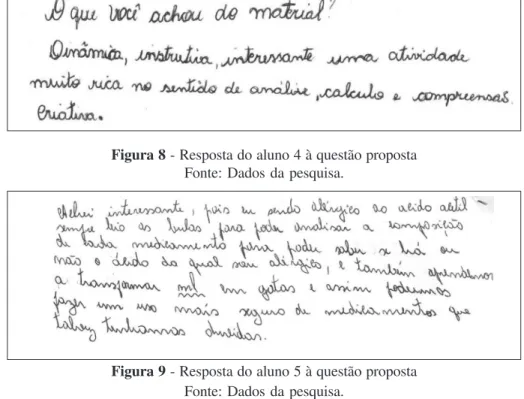 O que você achou do material?
Dinâmica, instrutiva, interessante uma atividade
muito rica no sentido de análise, calculo e compreensão.
Criativa.
Figura 8 - Resposta do aluno 4 à questão proposta
Fonte: Dados da pesquisa.
Achei interessante, pois eu sendo alérgico ao acido acetil
sempre leio as bulas para poder analisar a composição
de cada medicamento para poder saber se há ou
não o ácido da qual sou alérgico, e também aprendemos
a transformar ml em gotas e assim podermos
fazer um uso mais seguro de medicamentos que
talvez tenhamos duvidas.
Figura 9 - Resposta do aluno 5 à questão proposta
Fonte: Dados da pesquisa.